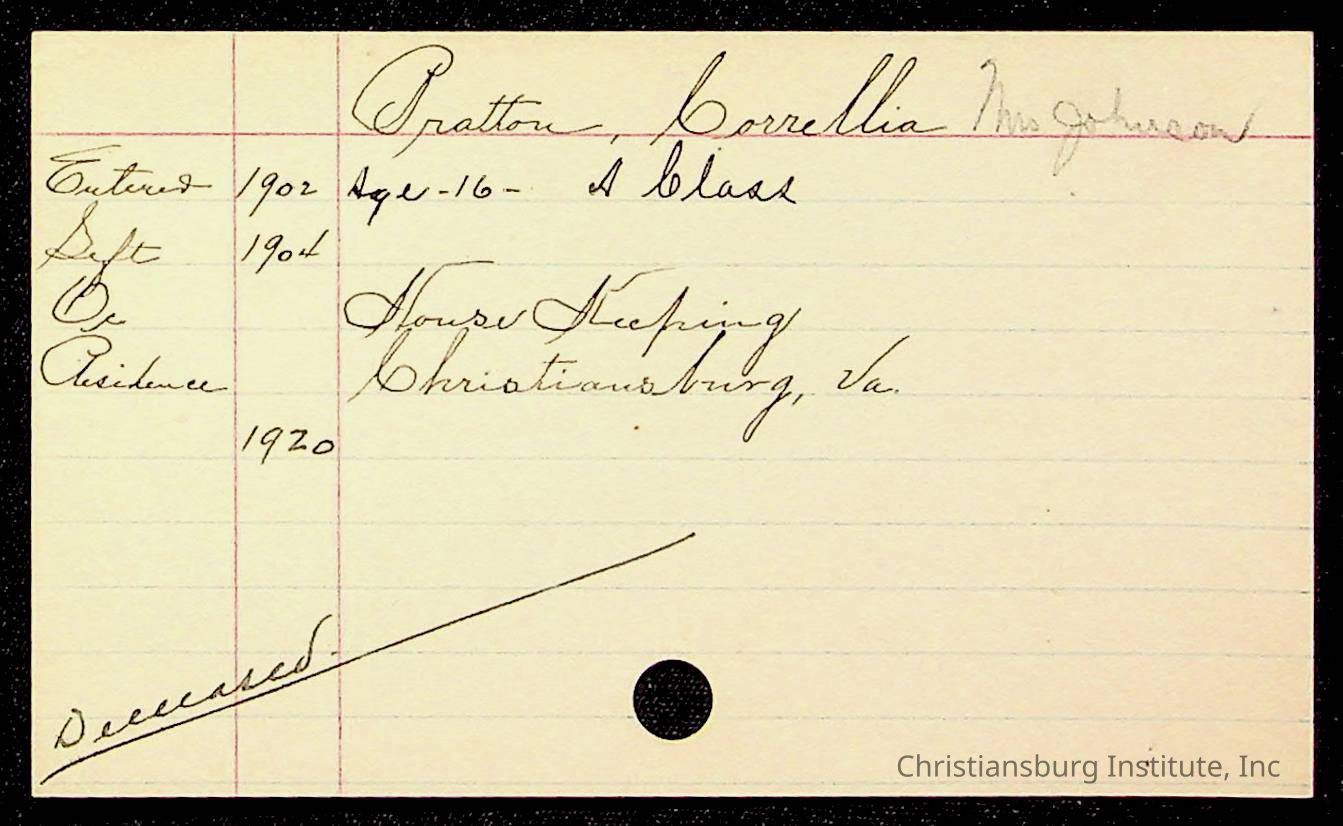 Pratton, Correllia Mrs Johnson
Entered 1902 Age-16- A Class
Left 1904
Oc House Keeping
Residence Christiansburg, Va.
1920
Deceased
Christiansburg Institute, Inc